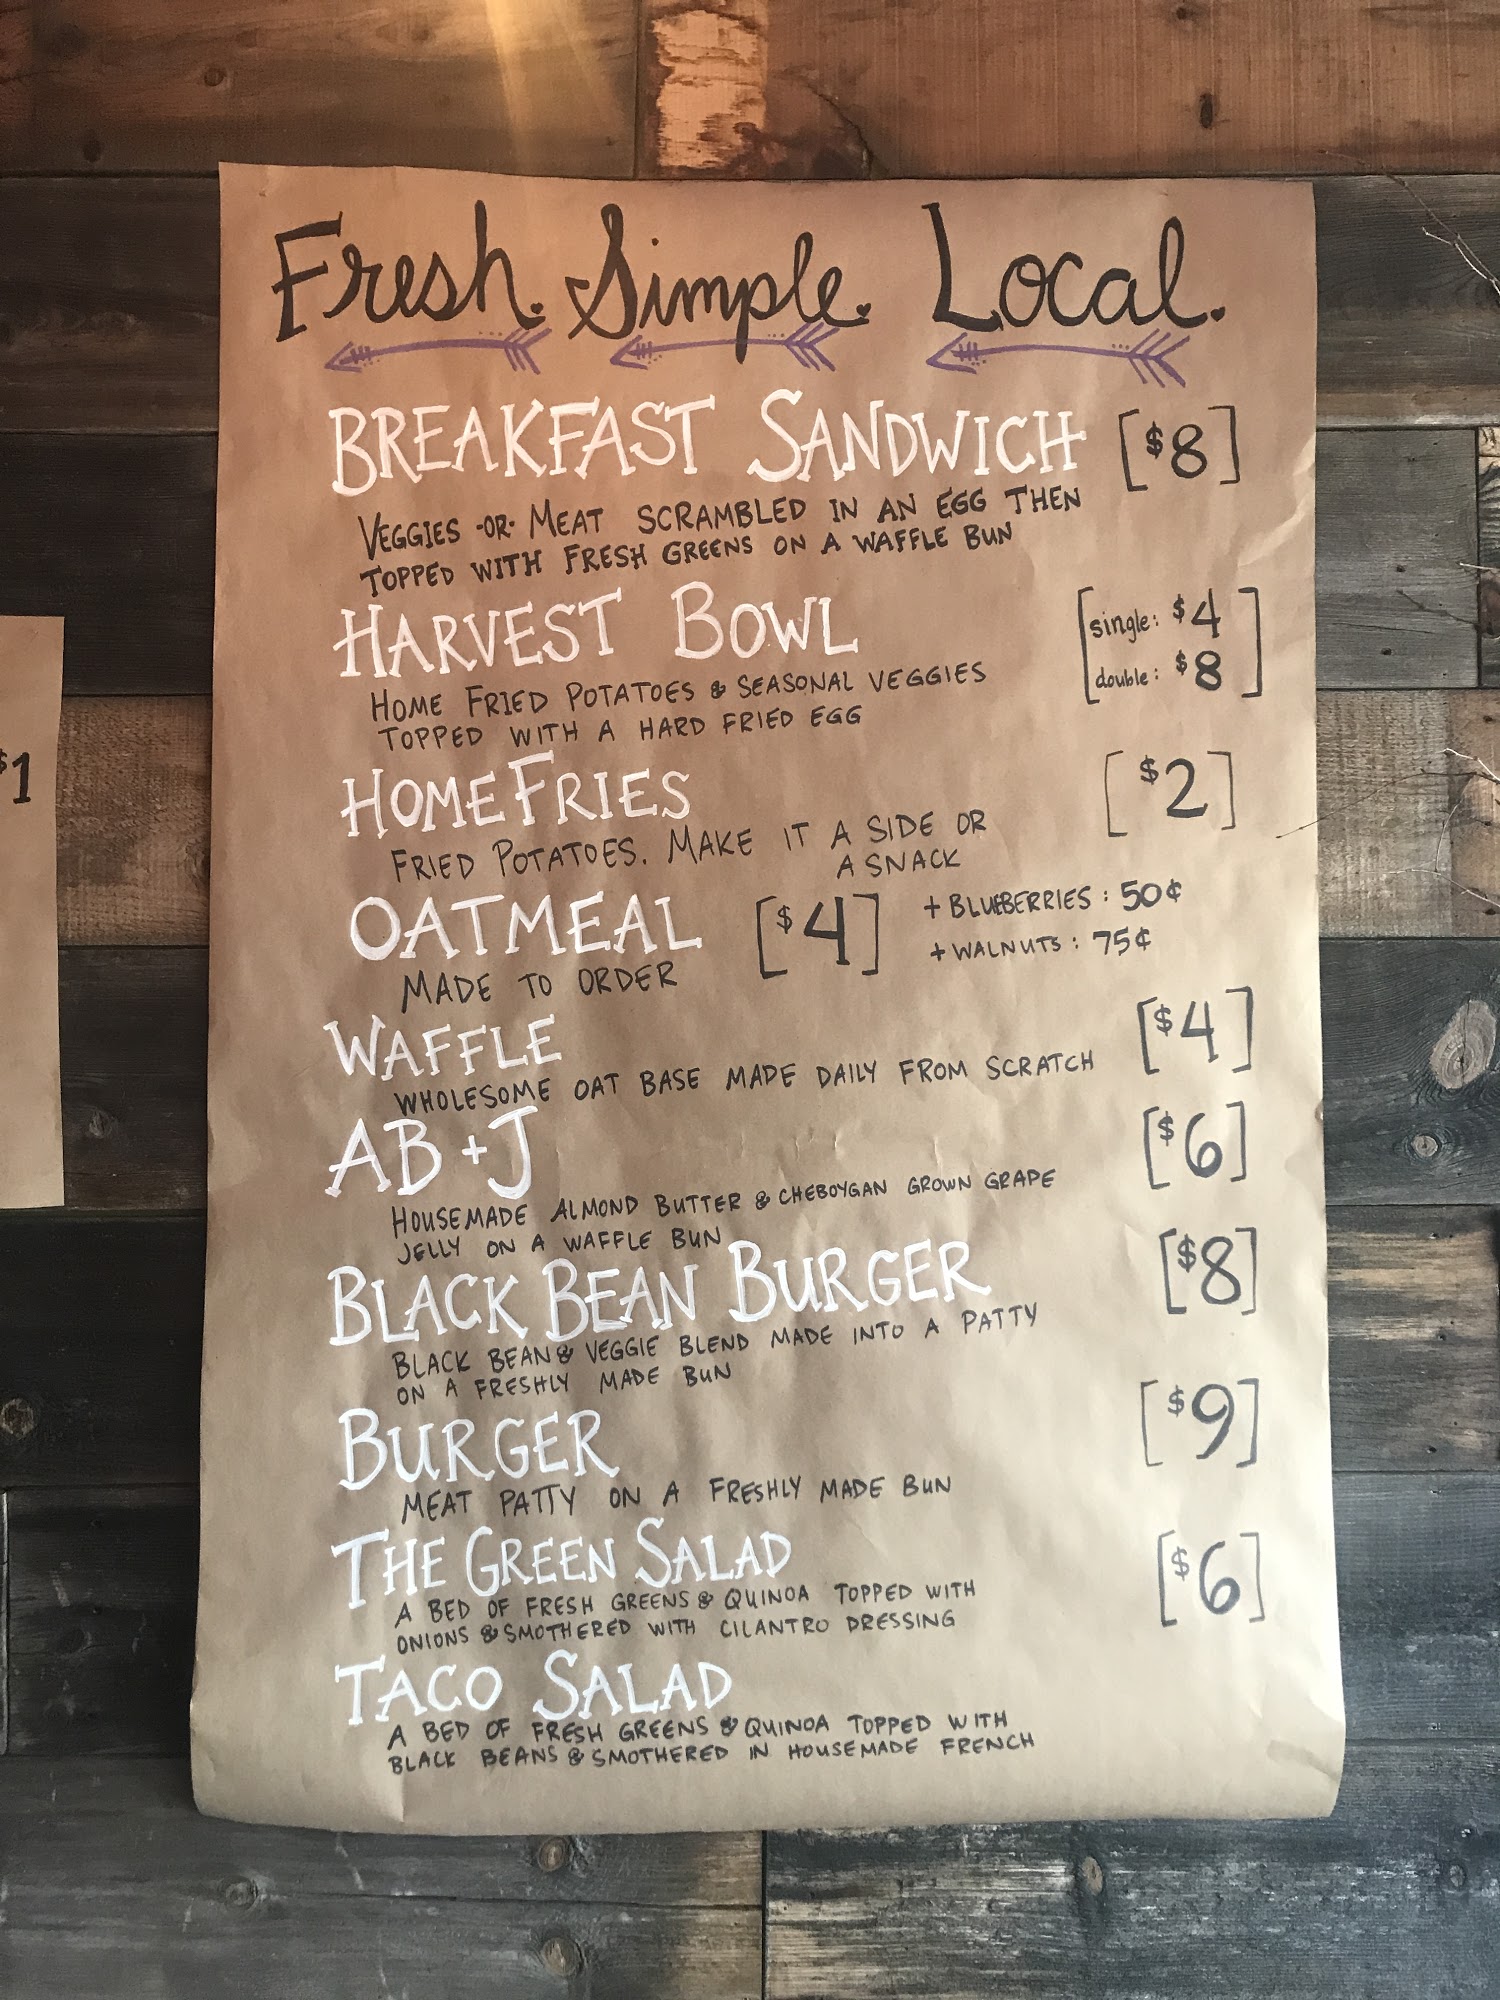 Fresh. Simple. Local.
BREAKFAST SANDWICH [$8]
VEGGIES -OR- MEAT SCRAMBLED IN AN EGG THEN
TOPPED WITH FRESH GREENS ON A WAFFLE BUN
HARVEST BOWL [single: $4
double: $8]
HOME FRIED POTATOES & SEASONAL VEGGIES
TOPPED WITH A HARD FRIED EGG
HOME FRIES [$2]
FRIED POTATOES. MAKE IT A SIDE OR
A SNACK
OATMEAL [$4] + BLUEBERRIES : 50¢
+ WALNUTS : 75¢
MADE TO ORDER
WAFFLE [$4]
WHOLESOME OAT BASE MADE DAILY FROM SCRATCH
AB + J [$6]
HOUSEMADE ALMOND BUTTER & CHEBOYGAN GROWN GRAPE
JELLY ON A WAFFLE BUN
BLACK BEAN BURGER [$8]
BLACK BEAN & VEGGIE BLEND MADE INTO A PATTY
ON A FRESHLY MADE BUN
BURGER [$9]
MEAT PATTY ON A FRESHLY MADE BUN
THE GREEN SALAD [$6]
A BED OF FRESH GREENS & QUINOA TOPPED WITH
ONIONS & SMOTHERED WITH CILANTRO DRESSING
TACO SALAD
A BED OF FRESH GREENS & QUINOA TOPPED WITH
BLACK BEANS & SMOTHERED IN HOUSEMADE FRENCH
$1